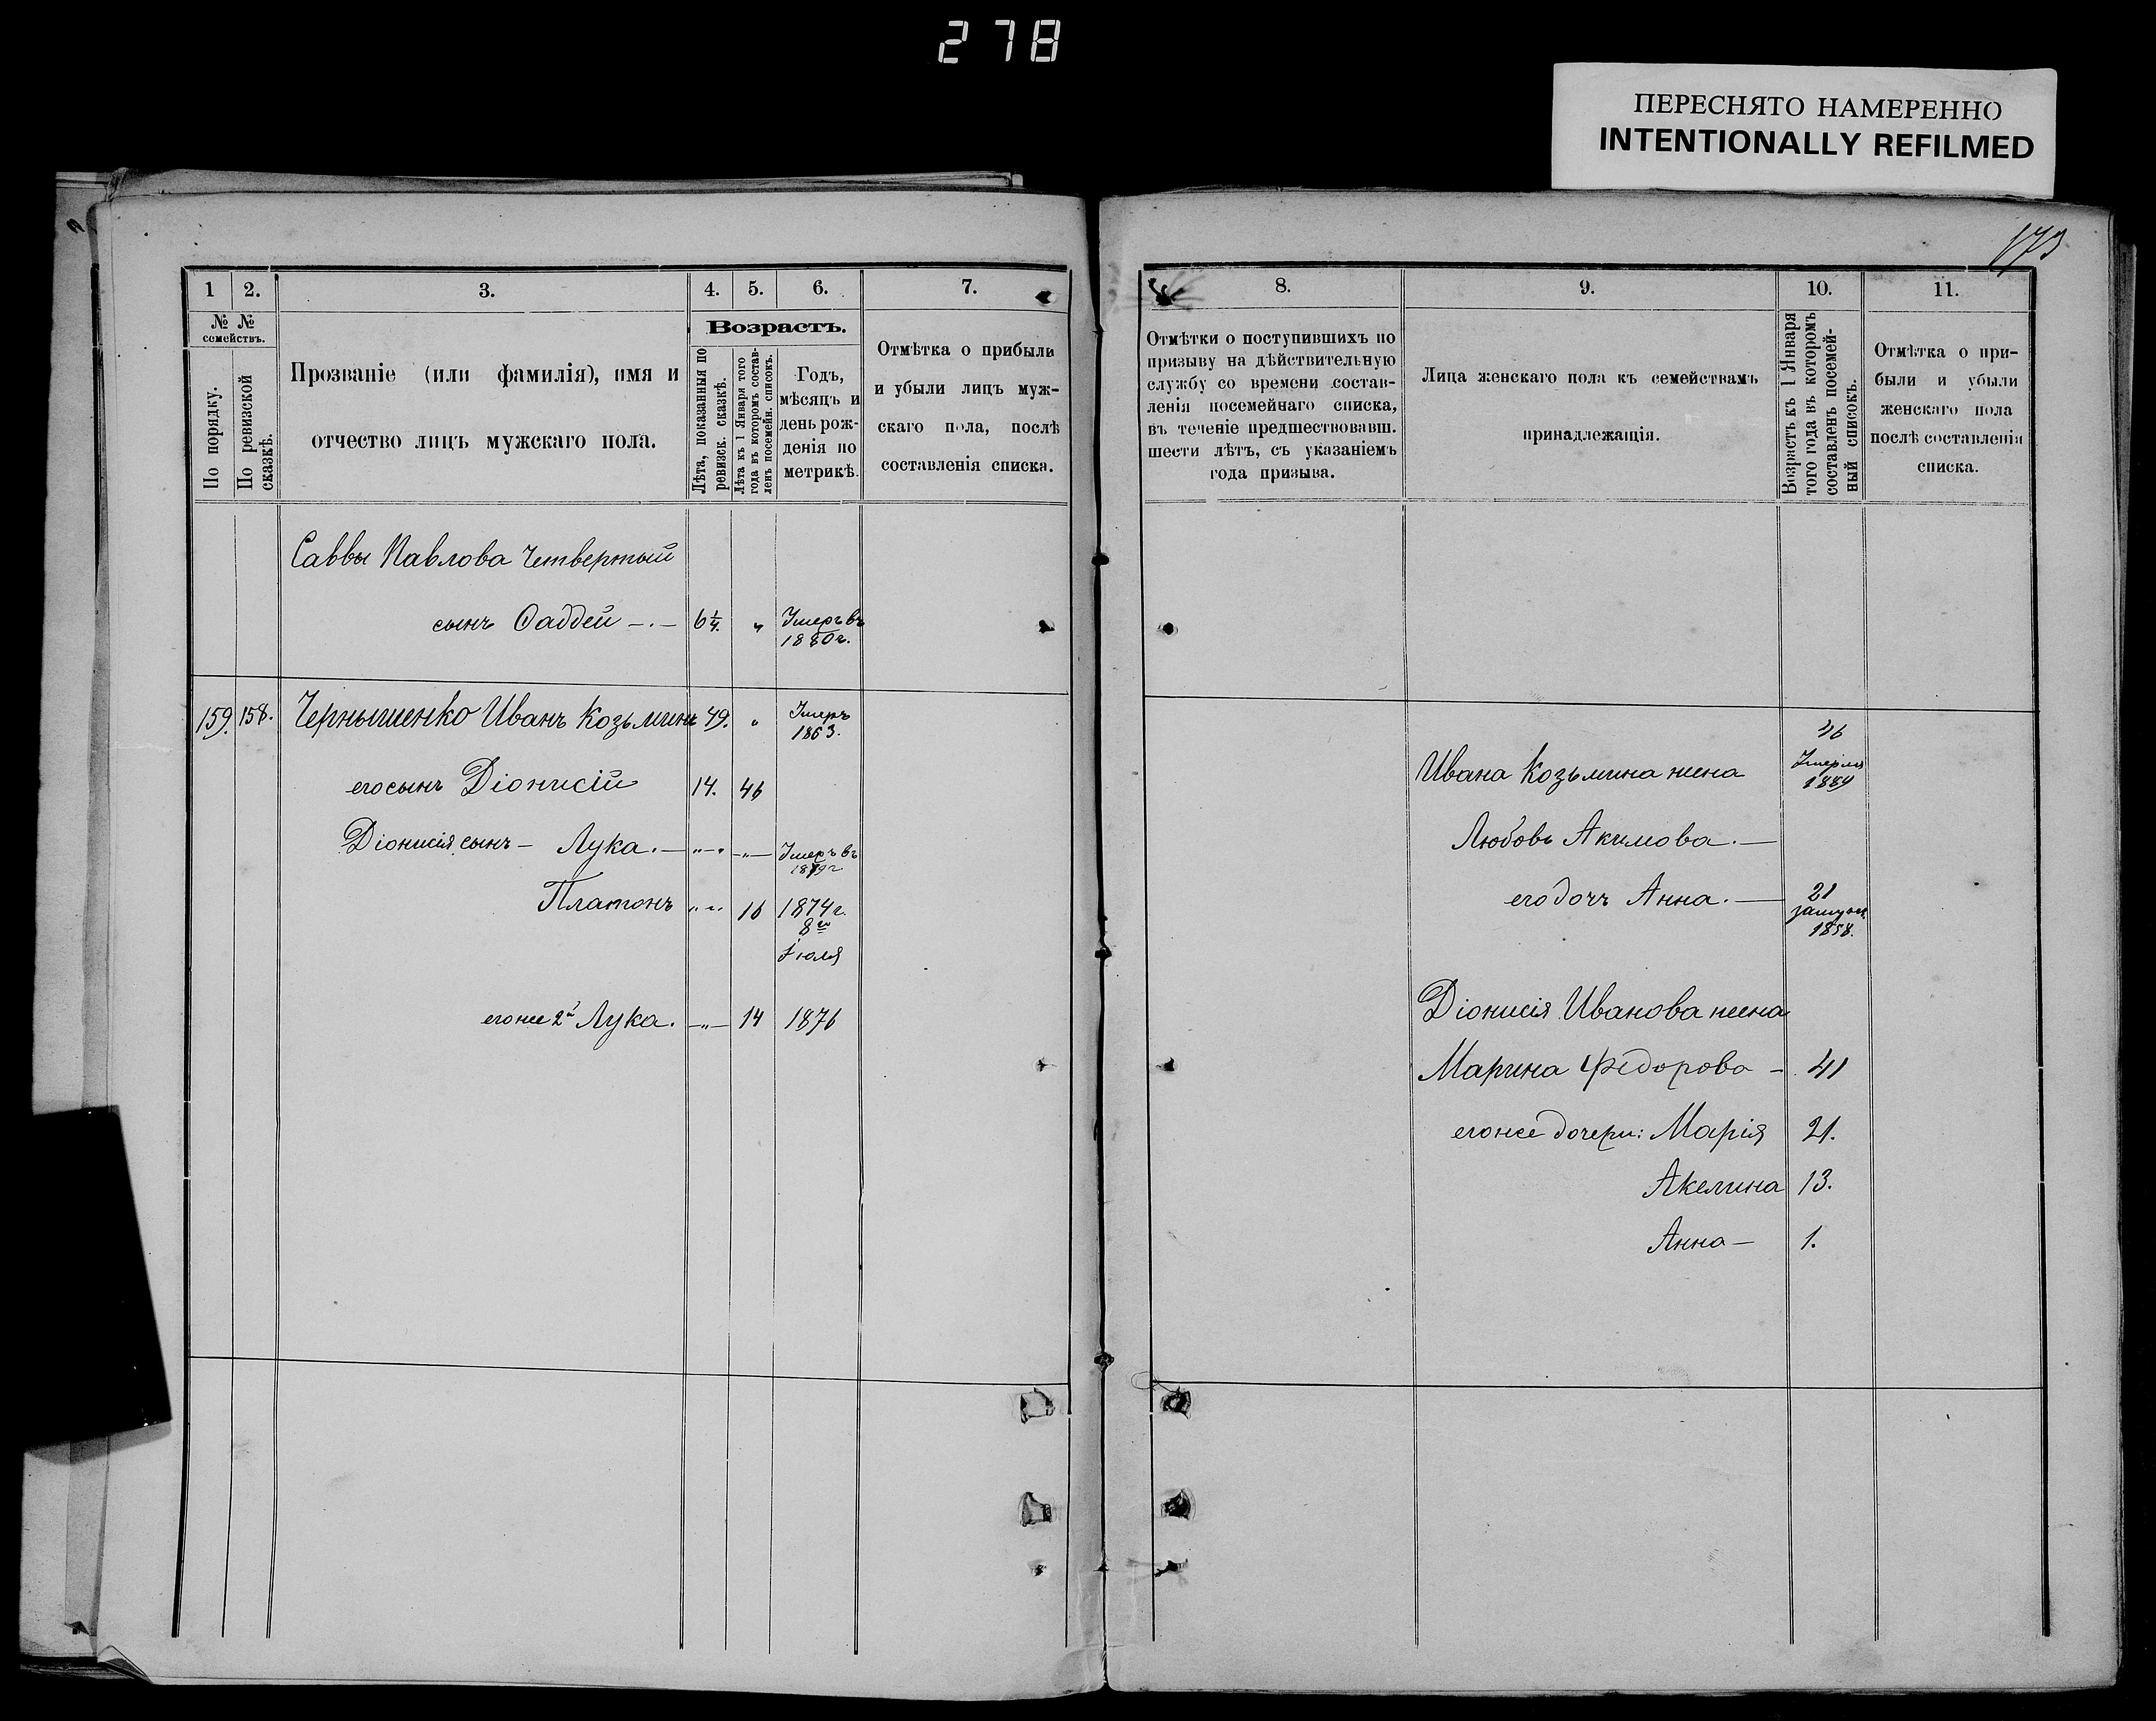 278
ПЕРЕСНЯТО НАМЕРЕННО
INTENTIONALLY REFILMED
173
1
2.
3.
4.
5.
6.
7.
№ №
семействъ.
По порядку.
По ревизской
сказкѣ.
Прозваніе (или фамилія), имя и
отчество лицъ мужскаго пола.
Возрастъ.
Лѣта, показанныя по
ревизск. сказкѣ.
Лѣта къ 1 Января того
года въ которомъ состав-
ленъ посемейн. списокъ.
Годъ,
мѣсяцъ и
день рож-
денія по
метрикѣ.
Отмѣтка о прибыли
и убыли лицъ муж-
скаго пола, послѣ
составленія списка.
Саввы Павлова Четвертый
сынъ Ѳаддей -.- 6¼. " Умеръ въ
1880г.
159. 158. Чернышенко Иванъ Козьминъ 49. " Умеръ
1863.
его сынъ Діонисій 14. 46
Діонисія сынъ - Лука. — " — " — Умеръ въ
1879г
Платонъ " " 16 1874г.
8го
Іюля
его же 2й Лука. — " — 14 1876
8.
9.
10.
11.
Отмѣтки о поступившихъ по
призыву на дѣйствительную
службу со времени состав-
ленія посемейнаго списка,
въ теченіе предшествовавш.
шести лѣтъ, съ указаніемъ
года призыва.
Лица женскаго пола къ семействамъ
принадлежащія.
Возрастъ къ 1 Января
того года въ которомъ
составленъ посемей-
ный списокъ.
Отмѣтка о при-
были и убыли
женскаго пола
послѣ составленія
списка.
46
Ивана Козьмина жена Умерла
1889
Любовь Акимова. —
его дочь Анна. — 21
замуж.
1858.
Діонисія Иванова жена
Марина Федорова - 41
его же дочери: Марія 21.
Акелина 13.
Анна — 1.